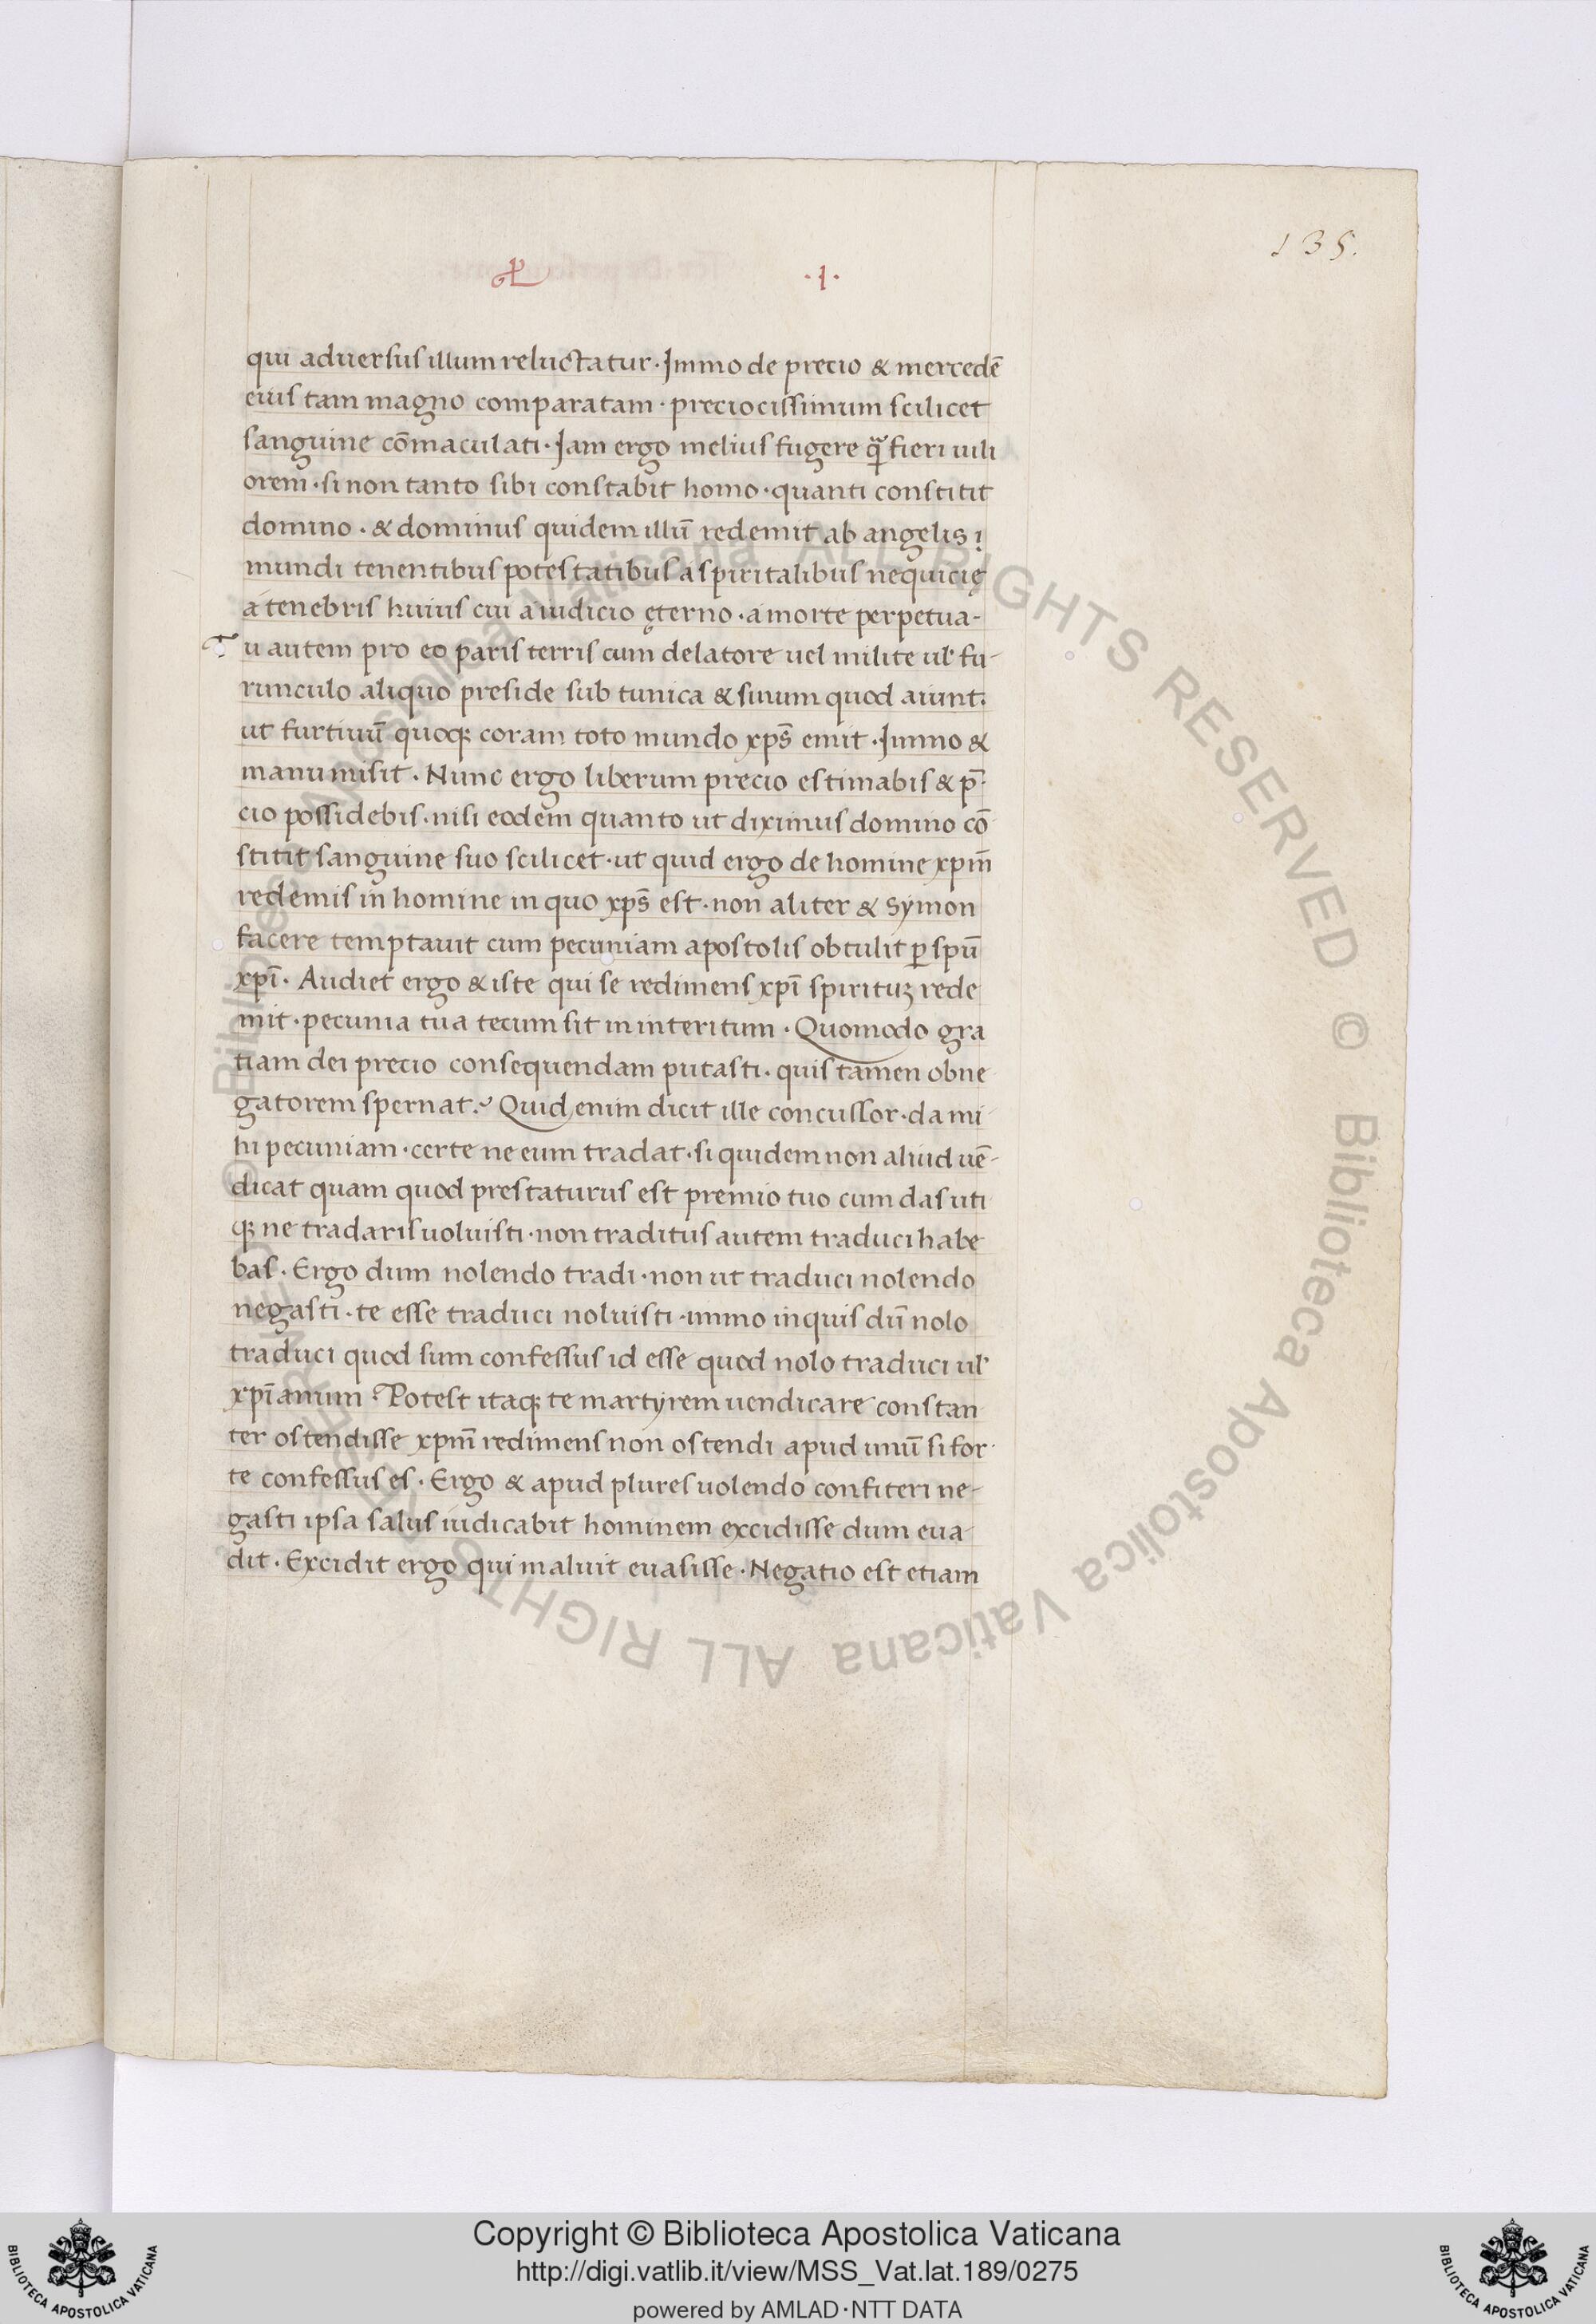 135.
·I·
qui aduersus illum reluctatur · Immo de precio & mercedē
eius tam magno comparatam · preciocissimum scilicet
sanguine cōmaculati · Jam ergo melius fugere quā fieri uili
orem · si non tanto sibi constabit homo · quanti constitit
domino · & dominus quidem illū redemit ab angelis ·
mundi tenentibus potestatibus a spiritalibus nequicię
a tenebris huius cui a iudicio ęterno · a morte perpetua-
Tu autem pro eo paris terris cum delatore uel milite ul' fu-
runculo aliquo preside sub tunica & sinum quod aiunt.
ut furtiuū quoq; coram toto mundo xp̄s emit · Immo &
manumisit · Nunc ergo liberum precio estimabis & p̄-
cio possidebis · nisi eodem quanto ut diximus domino cō-
stitit sanguine suo scilicet · ut quid ergo de homine xpm̄
redemis in homine in quo xp̄s est · non aliter & Symon
facere temptauit cum pecuniam apostolis obtulit ꝑ spū
xpī · Audiet ergo & iste qui se redimens xpī spirituꝫ rede
mit · pecunia tua tecum sit in interitum · Quomodo gra
tiam dei precio consequendam putasti · quis tamen obne
gatorem spernat? Quid enim dicit ille concussor · da mi
hi pecuniam · certe ne eum tradat · si quidem non aliud uē-
dicat quam quod prestaturus est premio tuo cum das uti
q; ne tradaris uoluisti · non traditus autem traduci habe
bas · Ergo dum nolendo tradi · non ut traduci nolendo
negasti · te esse traduci noluisti · immo inquis dū nolo
traduci quod sum confessus id esse quod nolo traduci ul'
xpīanum · Potest itaq; te martyrem uendicare constan
ter ostendisse xpm̄ redimens non ostendi apud unū si for-
te confessus es · Ergo & apud plures uolendo confiteri ne-
gasti ipsa salus iudicabit hominem excidisse dum eua-
dit · Excidit ergo qui maluit euasisse · Negatio est etiam
© Biblioteca Apostolica Vaticana ALL RIGHTS RESERVED © Biblioteca Apostolica Vaticana ALL RIGHTS RESERVED
Copyright © Biblioteca Apostolica Vaticana
http://digi.vatlib.it/view/MSS_Vat.lat.189/0275
powered by AMLAD·NTT DATA
BIBLIOTECA APOSTOLICA VATICANA
BIBLIOTECA APOSTOLICA VATICANA